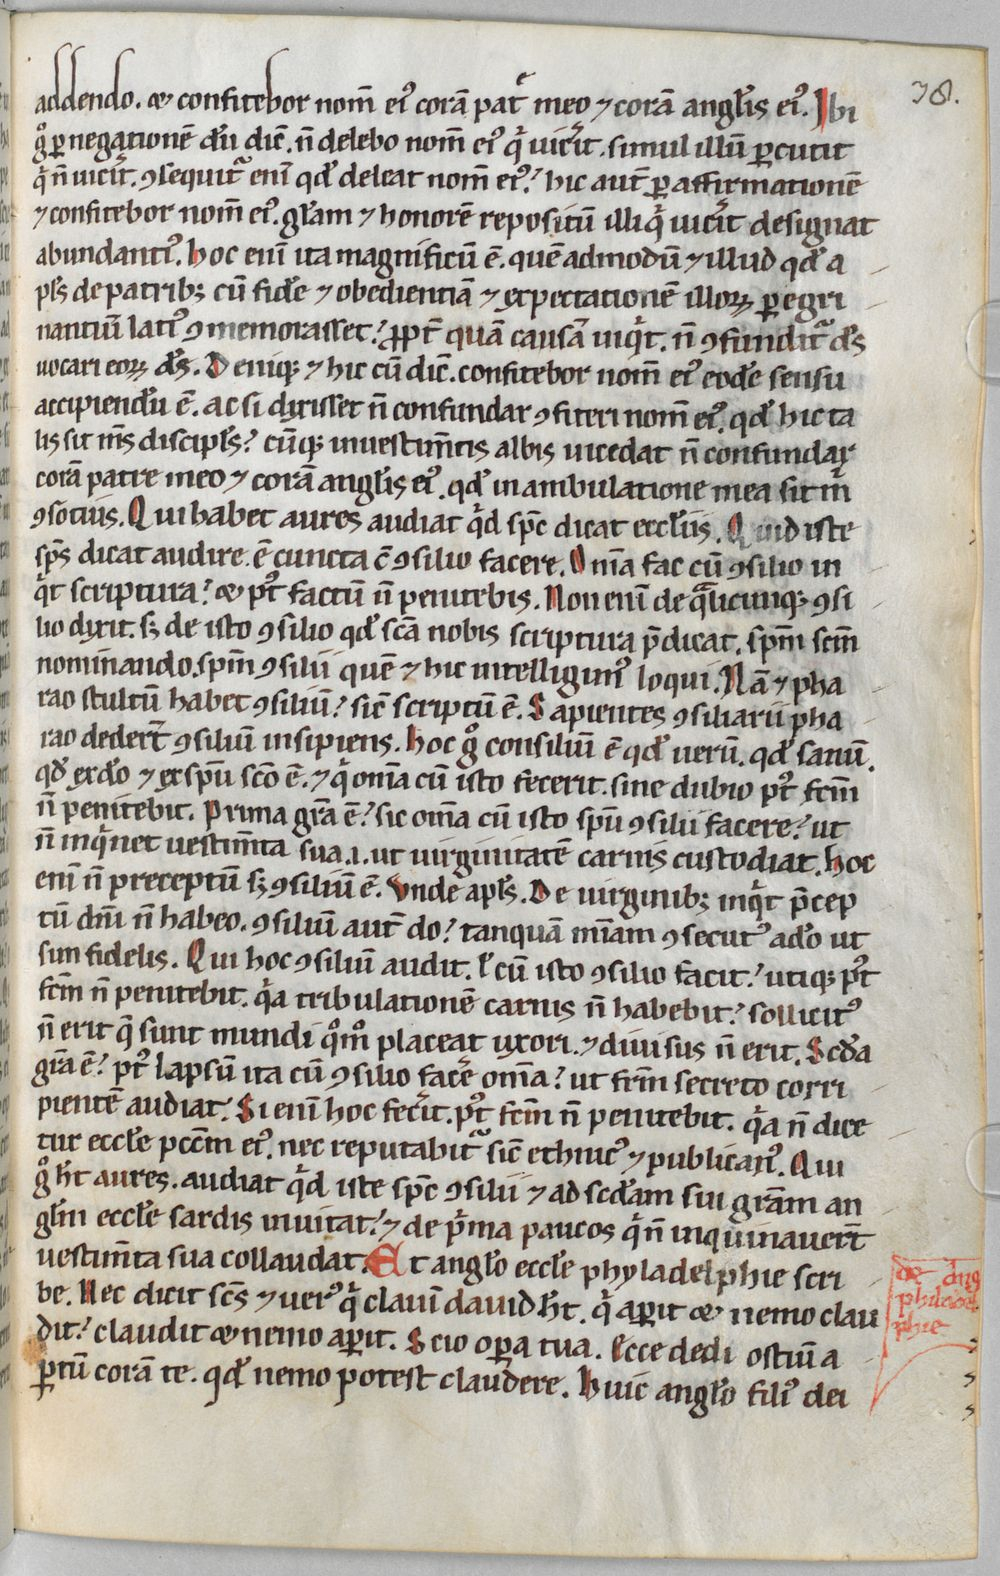 38.
addendo. & confitebor nom̄ ei᾽ corā pat͛ meo ⁊ corā angl̵is ei᾽. Ibi
gͦ ꝑ negationē dū dic̄. n̄ delebo nom̄ ei᾽ qͥ uic̄it. simul illū ꝑcutit
qͥ n̄ uic̄it. ꝯsequit᷑ eni qd̵ deleat nom̄ ei᾽. hic aut̄ ꝑ affirmationē
⁊ confitebor nom̄ ei᾽. gl̵am ⁊ honorē repositū illi qͥ uic̄it designat
abundanti᾽. hoc eni ita magnificū ē. quē admodū ⁊ illud qd̵ a
pl̵s de patrib; cū fide ⁊ obedientiā ⁊ expectationē illoꝝ ꝑegri
nantiū lati᾽ ꝯmemorasset. ꝓpt̄ quā causā inqͥt. n̄ ꝯfundit᷑ d̵s
uocari eoꝝ d̵s. Deniq; ⁊ hic cū dic̄. confitebor nom̄ ei᾽ eod̵e sensu
accipiendū ē. ac si dixisset n̄ confundar ꝯfiteri nom̄ ei᾽. qd̵ hic ta
lis sit m̄s discipl̵s. cūq; in uestim̄tis albis incedat n̄ confundar
corā patre meo ⁊ corā angl̵is ei᾽. qd̵ in ambulatione mea sit m̄
ꝯsotius. Qui habet aures audiat qͥd sp̄c dicat eccl̵iis. Quid iste
sp̄s dicat audire. ē cuncta cū ꝯsilio facere. Omīa fac cū ꝯsilio in
qͥt scriptura. & p᾽t factū n̄ penitebis. Non eni de qualicunq; ꝯsi
lio dixit. s; de isto ꝯsilio qd̵ sc̄a nobis scriptura p̄dicat. sp̄m sc̄m
nominando. sp̄m ꝯsilii quē ⁊ hic intelligim᾽ loqui. Nā ⁊ pha
rao stultū habet ꝯsiliū. sic̄ scriptū ē. Sapientes ꝯsiliarii pha
rao dedert̄ ꝯsiliū insipiens. hoc gͦ consiliū ē qd̵ uerū. qd̵ sanū.
qd̵ ex do ⁊ ex sp̄u sc̄o ē. ⁊ qͥ omīa cū isto fecerit. sine dubio p᾽t fc̄m
n̄ penitebit. Prima gr̄a ē. sic omīa cū isto sp̄u ꝯsilii facere. ut
n̄ inqͥnet uestim̄ta sua .i. ut uirginitatē carnis custodiat. hoc
eni n̄ preceptū s; ꝯsiliū ē. Vnde apl̵s. De uirginib; inqͥt p̄cep
tū dn̄i n̄ habeo. ꝯsiliū aut̄ do. tanquā mīam ꝯsecut᾽ a do ut
sim fidelis. Qui hoc ꝯsiliū audit. ł cū isto ꝯsilio facit. utiq; p᾽t
fc̄m n̄ penitebit. qͥa tribulationē carnis n̄ habebit. sollicit᾽
n̄ erit q̄ sunt mundi qͦmͦ placeat uxori. ⁊ diuisus n̄ erit. Scd̵a
gr̄a ē. p᾽t lapsū ita cū ꝯsilio fac̄e omīa. ut fr̄m secreto corri
pientē audiat. Si eni hoc fec̄it. p᾽t fc̄m n̄ penitebit. qͥa n̄ dice
tur eccl̵e pcc̄m ei᾽. nec reputabit᷑ sic̄ ethnic᾽ ⁊ publican᾽. Qui
gͦ ht̄ aures. audiat qͥd iste sp̄c ꝯsilii ⁊ ad scd̵am sui gr̄am an
gl̵m eccl̵e sardis inuitat. ⁊ de pͥma paucos qͥ n̄ inquinauer̄t
uestim̄ta sua collaudat. Et angl̵o eccl̵e phyladelphie scri
be. Hec dicit sc̄s ⁊ uer᾽ qͥ clauē dauid ht̄. qͥ aꝑit & nemo clau
dit. claudit & nemo aꝑit. Scio oꝑa tua. Ecce dedi ostiū a
ꝑtū corā te. qd̵ nemo potest claudere. Huic angl̵o fili᾽ dei
de ang
philadel
phie